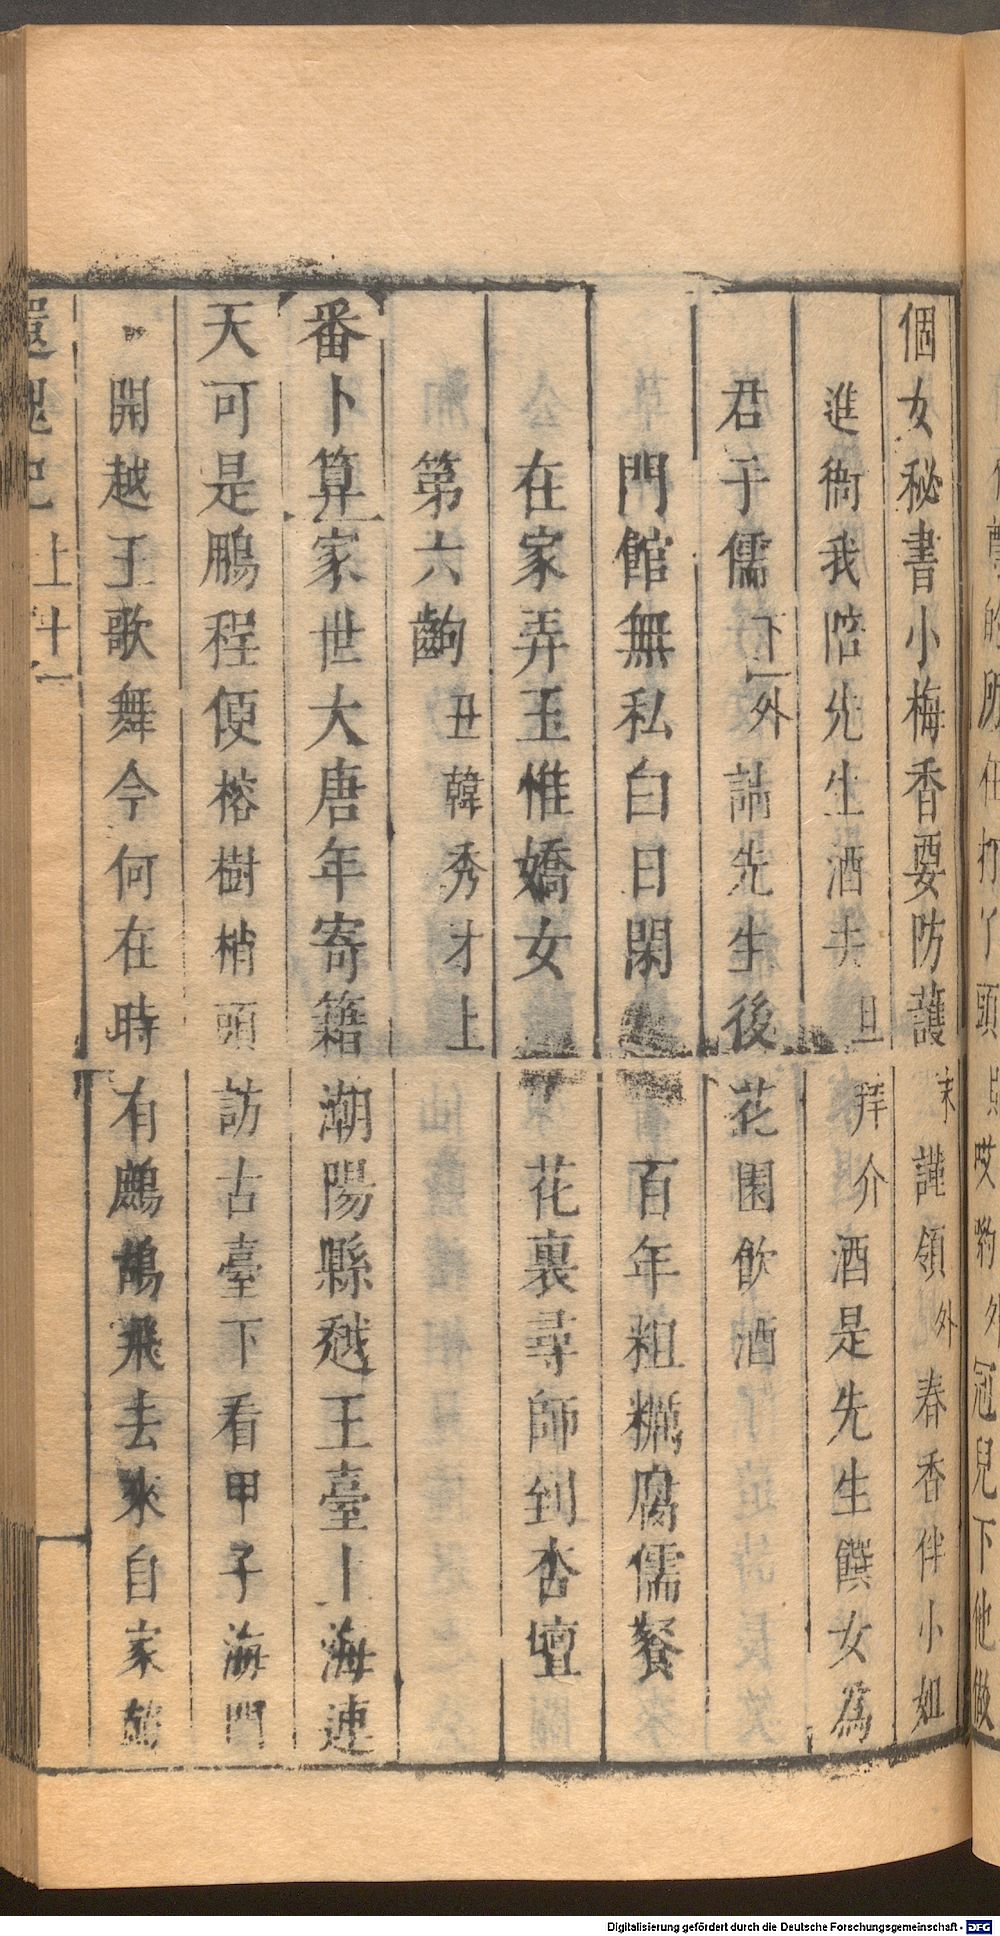 個女秘書小梅香要防護末謹領外春香伴小姐
進衙我陪先生酒去旦拜介酒是先生饌女為
君子儒下外請先生後花園飲酒
門館無私白日閑百年粗糲腐儒餐
在家弄玉惟嬌女花裏尋師到杏壇
第六齣丑韓秀才上
番卜算家世大唐年寄籍潮陽縣越王臺上海連
天可是鵬程便榕樹梢頭訪古臺下看甲子海門
開越王歌舞今何在時有鷓鴣飛去來自家
還魂記上十一
Digitalisierung gefördert durch die Deutsche Forschungsgemeinschaft - DFG